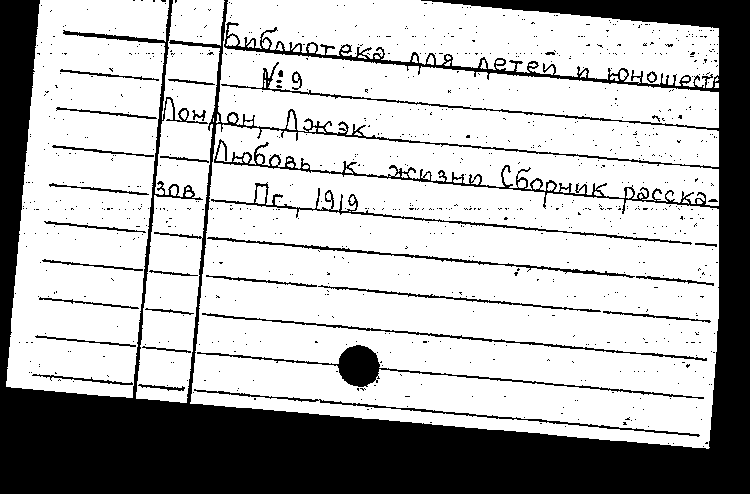 Библиотека для детей и юношеств
№ 9.
Лондон, Джэк.
Любовь к жизни Сборник расска-
зов. Пг., 1919.